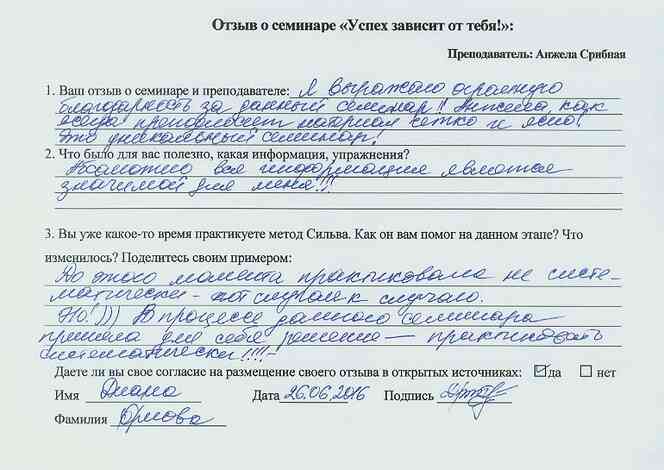 Отзыв о семинаре «Успех зависит от тебя!»:
Преподаватель: Анжела Срибная
1. Ваш отзыв о семинаре и преподавателе: Я выражаю огромную
благодарность за данный семинар!! Анжела, как
всегда преподносит материал четко и ясно.
Это уникальный семинар!
2. Что было для вас полезно, какая информация, упражнения?
Абсолютно вся информация является
значимой для меня!!!
3. Вы уже какое-то время практикуете метод Сильва. Как он вам помог на данном этапе? Что
изменилось? Поделитесь своим примером:
До этого момента практиковала не систе-
матически - от случая к случаю.
Но!))) В процессе данного семинара
приняла для себя решение — практиковать
систематически!!!!-
Даете ли вы свое согласие на размещение своего отзыва в открытых источниках: да нет
Имя Диана Дата 26.06.2016 Подпись
Фамилия Орлова